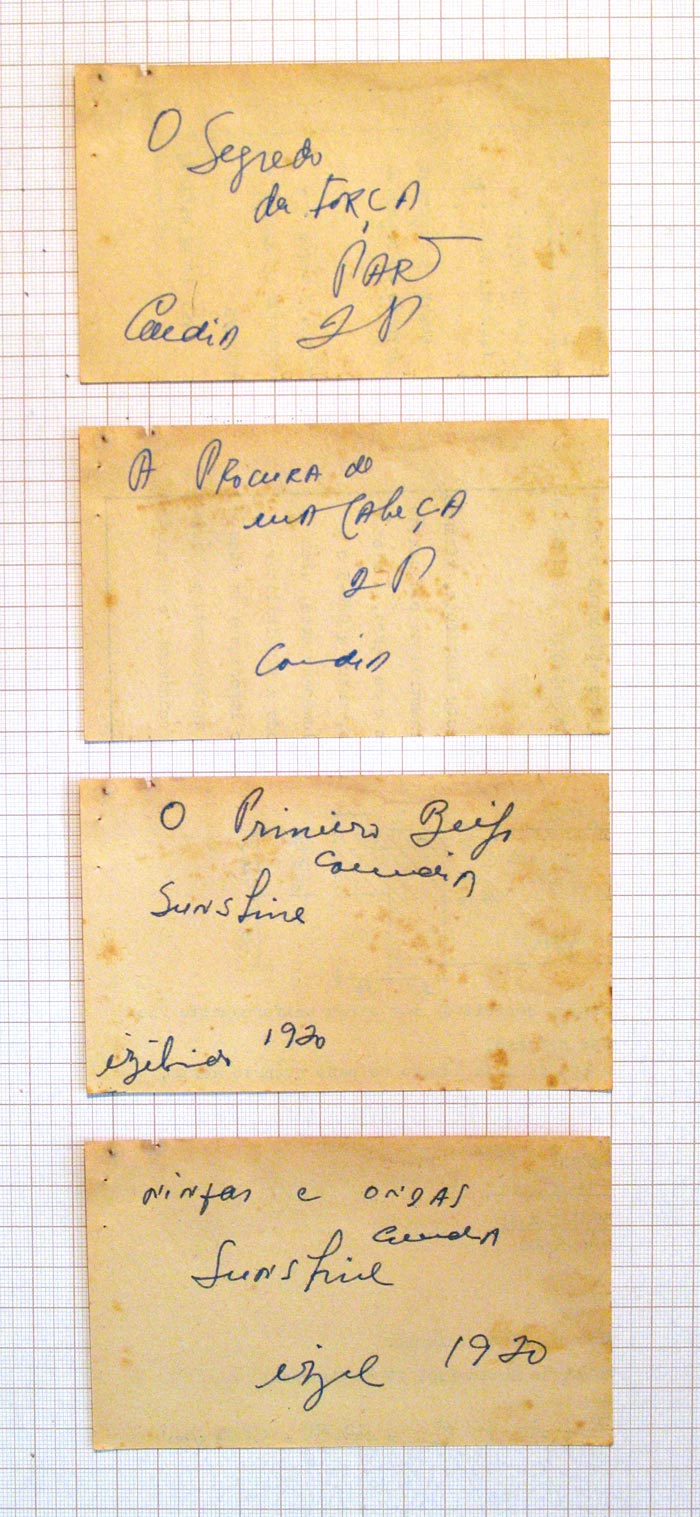 O Segredo
da FORÇA
PAR
Comedia 2 P
A PROCURA de
sua CABEÇA
2 P
Comedia
O Primeiro Beijo
Comedia
Sunshine
1920
Ninfas e ONDAS
Comedia
Sunshine
1920